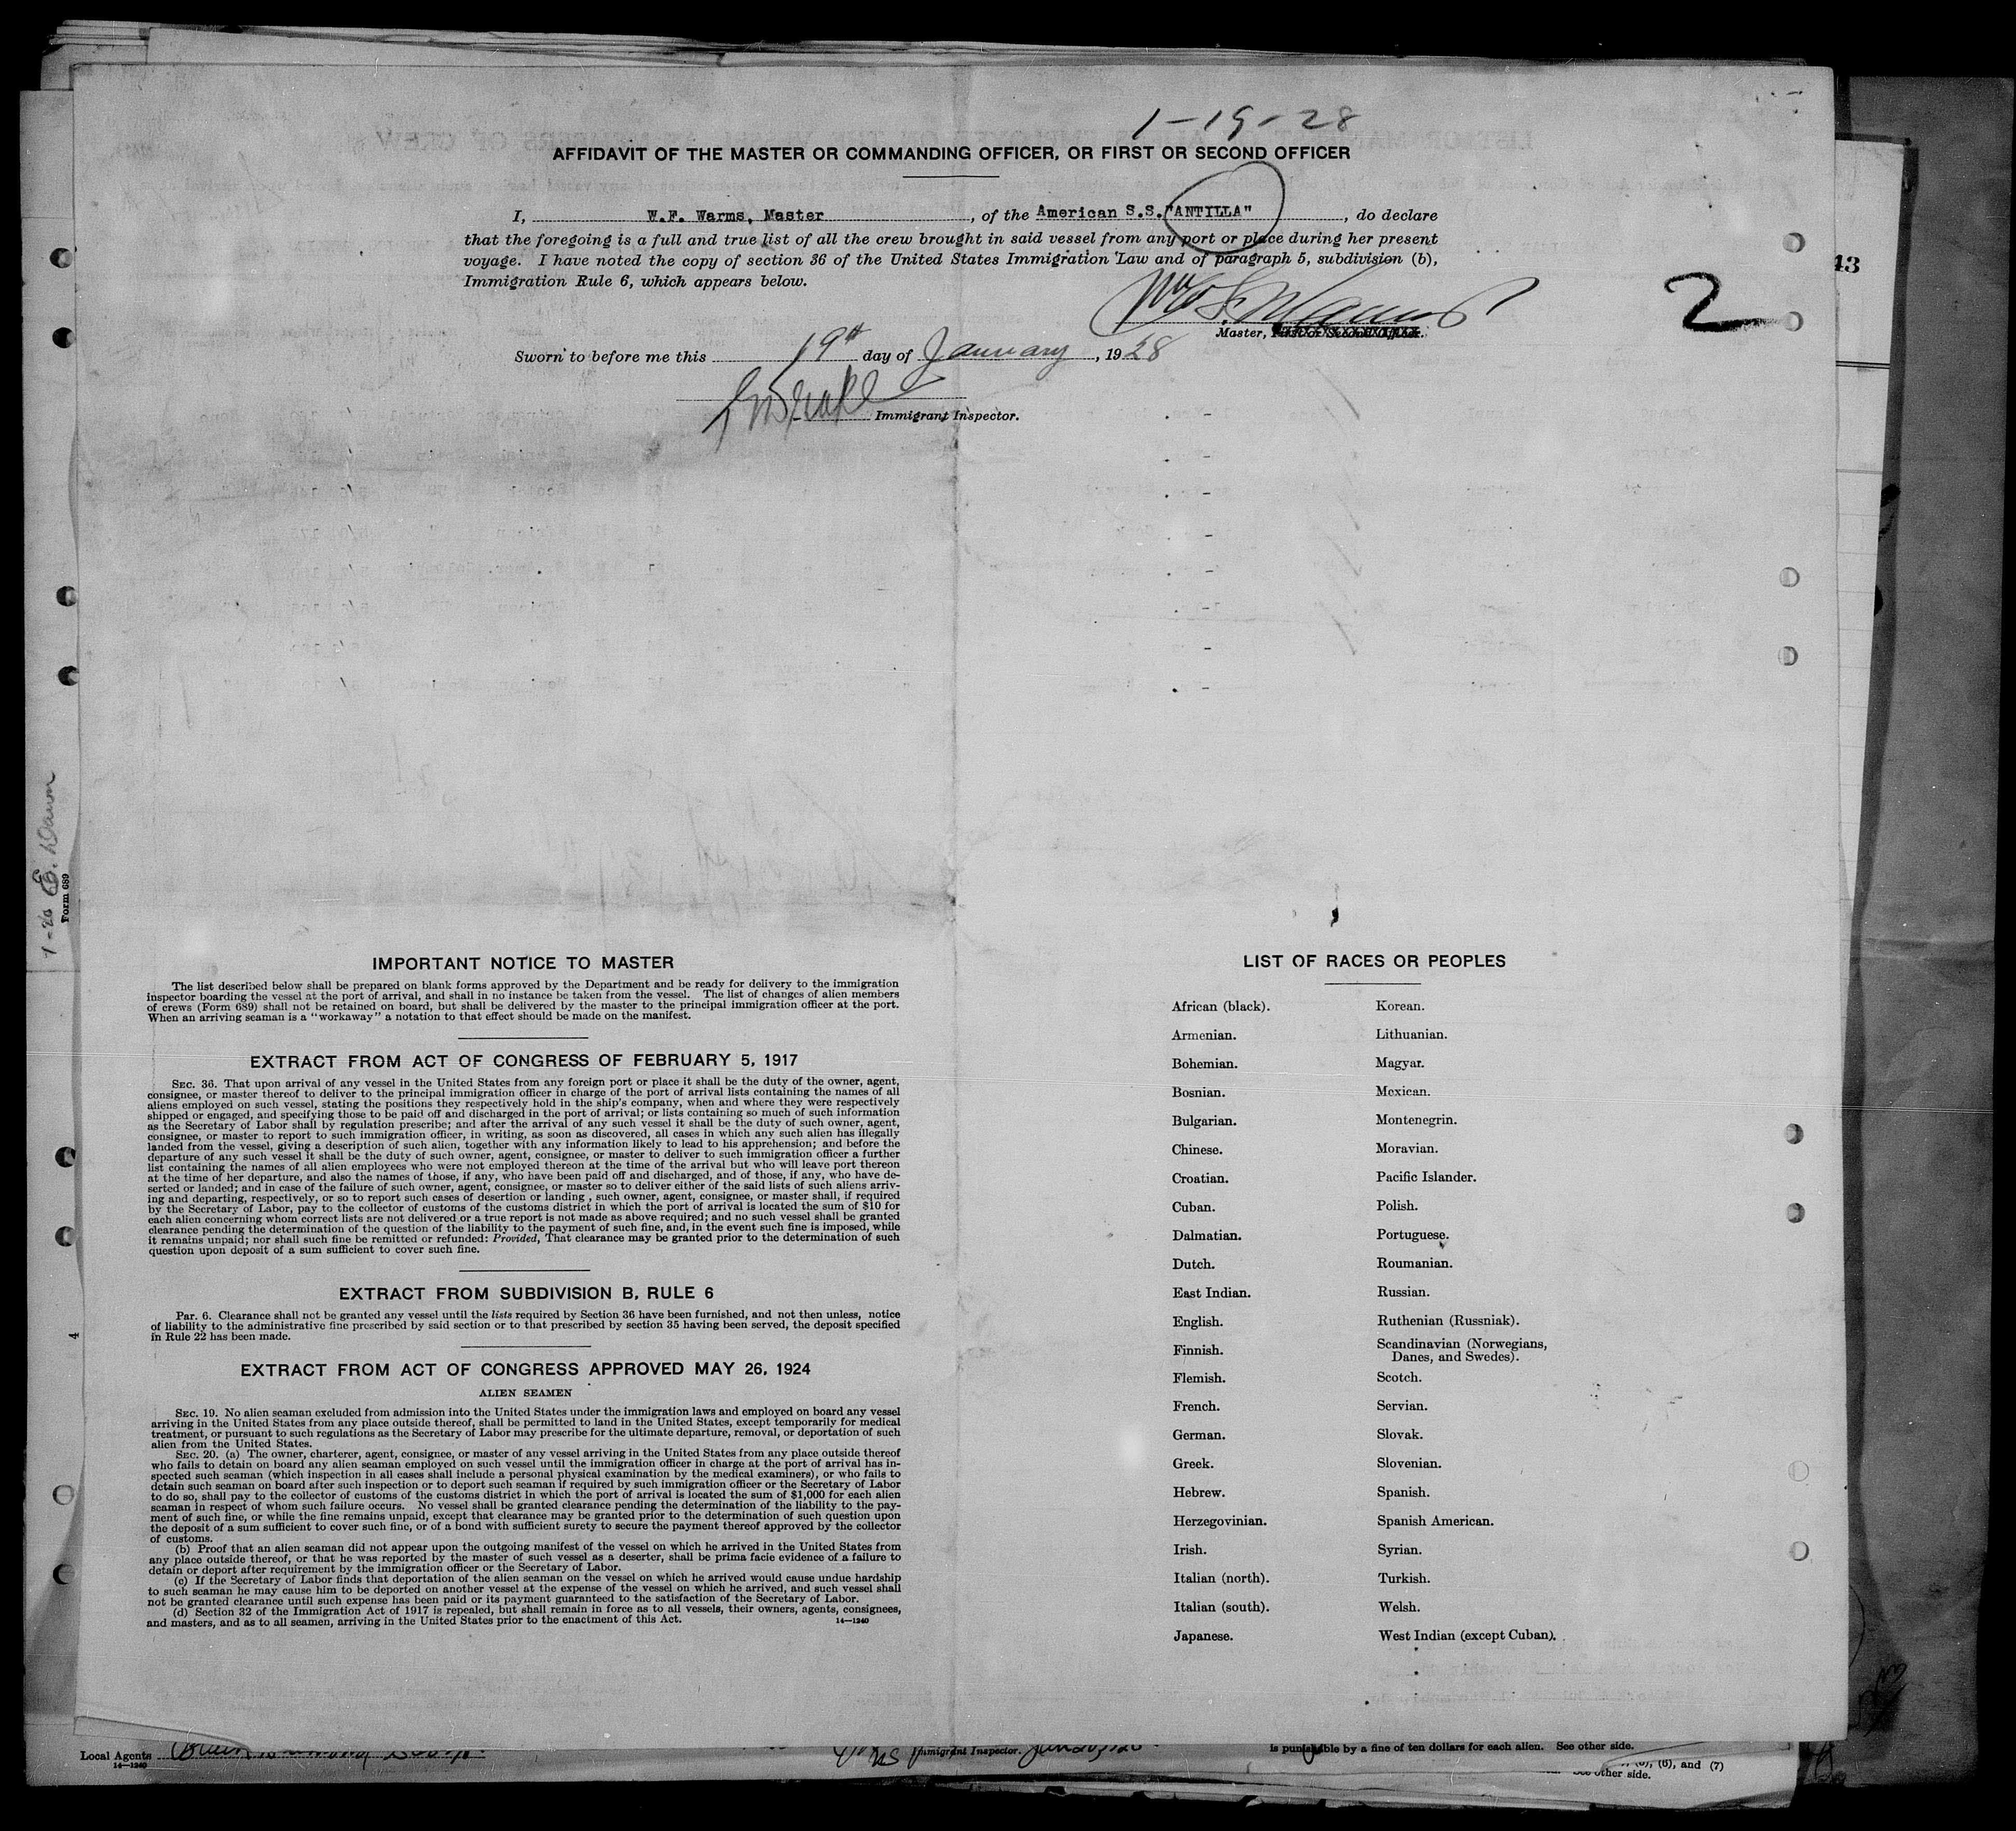 1-19-28
AFFIDAVIT OF THE MASTER OR COMMANDING OFFICER, OR FIRST OR SECOND OFFICER
I, W.F. Warms, Master, of the American S.S."ANTILLA", do declare
that the foregoing is a full and true list of all the crew brought in said vessel from any port or place during her present
voyage. I have noted the copy of section 36 of the United States Immigration Law and of paragraph 5, subdivision (b),
Immigration Rule 6, which appears below.
2
Master, First or Second Officer.
Sworn to before me this 19th day of January, 1928
Immigrant Inspector.
43
Form 689
4
IMPORTANT NOTICE TO MASTER
The list described below shall be prepared on blank forms approved by the Department and be ready for delivery to the immigration
inspector boarding the vessel at the port of arrival, and shall in no instance be taken from the vessel. The list of changes of alien members
of crews (Form 689) shall not be retained on board, but shall be delivered by the master to the principal immigration officer at the port.
When an arriving seaman is a "workaway" a notation to that effect should be made on the manifest.
EXTRACT FROM ACT OF CONGRESS OF FEBRUARY 5, 1917
SEC. 36. That upon arrival of any vessel in the United States from any foreign port or place it shall be the duty of the owner, agent,
consignee, or master thereof to deliver to the principal immigration officer in charge of the port of arrival lists containing the names of all
aliens employed on such vessel, stating the positions they respectively hold in the ship's company, when and where they were respectively
shipped or engaged, and specifying those to be paid off and discharged in the port of arrival; or lists containing so much of such information
as the Secretary of Labor shall by regulation prescribe; and after the arrival of any such vessel it shall be the duty of such owner, agent,
consignee, or master to report to such immigration officer, in writing, as soon as discovered, all cases in which any such alien has illegally
landed from the vessel, giving a description of such alien, together with any information likely to lead to his apprehension; and before the
departure of any such vessel it shall be the duty of such owner, agent, consignee, or master to deliver to such immigration officer a further
list containing the names of all alien employees who were not employed thereon at the time of the arrival but who will leave port thereon
at the time of her departure, and also the names of those, if any, who have been paid off and discharged, and of those, if any, who have de-
serted or landed; and in case of the failure of such owner, agent, consignee, or master so to deliver either of the said lists of such aliens arriv-
ing and departing, respectively, or so to report such cases of desertion or landing , such owner, agent, consignee, or master shall, if required
by the Secretary of Labor, pay to the collector of customs of the customs district in which the port of arrival is located the sum of $10 for
each alien concerning whom correct lists are not delivered or a true report is not made as above required; and no such vessel shall be granted
clearance pending the determination of the question of the liability to the payment of such fine, and, in the event such fine is imposed, while
it remains unpaid; nor shall such fine be remitted or refunded: Provided, That clearance may be granted prior to the determination of such
question upon deposit of a sum sufficient to cover such fine.
EXTRACT FROM SUBDIVISION B, RULE 6
Par. 6. Clearance shall not be granted any vessel until the lists required by Section 36 have been furnished, and not then unless, notice
of liability to the administrative fine prescribed by said section or to that prescribed by section 35 having been served, the deposit specified
in Rule 22 has been made.
EXTRACT FROM ACT OF CONGRESS APPROVED MAY 26, 1924
ALIEN SEAMEN
SEC. 19. No alien seaman excluded from admission into the United States under the immigration laws and employed on board any vessel
arriving in the United States from any place outside thereof, shall be permitted to land in the United States, except temporarily for medical
treatment, or pursuant to such regulations as the Secretary of Labor may prescribe for the ultimate departure, removal, or deportation of such
alien from the United States.
SEC. 20. (a) The owner, charterer, agent, consignee, or master of any vessel arriving in the United States from any place outside thereof
who fails to detain on board any alien seaman employed on such vessel until the immigration officer in charge at the port of arrival has in-
spected such seaman (which inspection in all cases shall include a personal physical examination by the medical examiners), or who fails to
detain such seaman on board after such inspection or to deport such seaman if required by such immigration officer or the Secretary of Labor
to do so, shall pay to the collector of customs of the customs district in which the port of arrival is located the sum of $1,000 for each alien
seaman in respect of whom such failure occurs. No vessel shall be granted clearance pending the determination of the liability to the pay-
ment of such fine, or while the fine remains unpaid, except that clearance may be granted prior to the determination of such question upon
the deposit of a sum sufficient to cover such fine, or of a bond with sufficient surety to secure the payment thereof approved by the collector
of customs.
(b) Proof that an alien seaman did not appear upon the outgoing manifest of the vessel on which he arrived in the United States from
any place outside thereof, or that he was reported by the master of such vessel as a deserter, shall be prima facie evidence of a failure to
detain or deport after requirement by the immigration officer or the Secretary of Labor.
(c) If the Secretary of Labor finds that deportation of the alien seaman on the vessel on which he arrived would cause undue hardship
to such seaman he may cause him to be deported on another vessel at the expense of the vessel on which he arrived, and such vessel shall
not be granted clearance until such expense has been paid or its payment guaranteed to the satisfaction of the Secretary of Labor.
(d) Section 32 of the Immigration Act of 1917 is repealed, but shall remain in force as to all vessels, their owners, agents, consignees,
and masters, and as to all seamen, arriving in the United States prior to the enactment of this Act.
14—1240
LIST OF RACES OR PEOPLES
African (black). Korean.
Armenian. Lithuanian.
Bohemian. Magyar.
Bosnian. Mexican.
Bulgarian. Montenegrin.
Chinese. Moravian.
Croatian. Pacific Islander.
Cuban. Polish.
Dalmatian. Portuguese.
Dutch. Roumanian.
East Indian. Russian.
English. Ruthenian (Russniak).
Finnish. Scandinavian (Norwegians,
Danes, and Swedes).
Flemish. Scotch.
French. Servian.
German. Slovak.
Greek. Slovenian.
Hebrew. Spanish.
Herzegovinian. Spanish American.
Irish. Syrian.
Italian (north). Turkish.
Italian (south). Welsh.
Japanese. West Indian (except Cuban).
Local Agents
14—1240
Immigrant Inspector.
is punishable by a fine of ten dollars for each alien. See other side.
(6), and (7)
See other side.